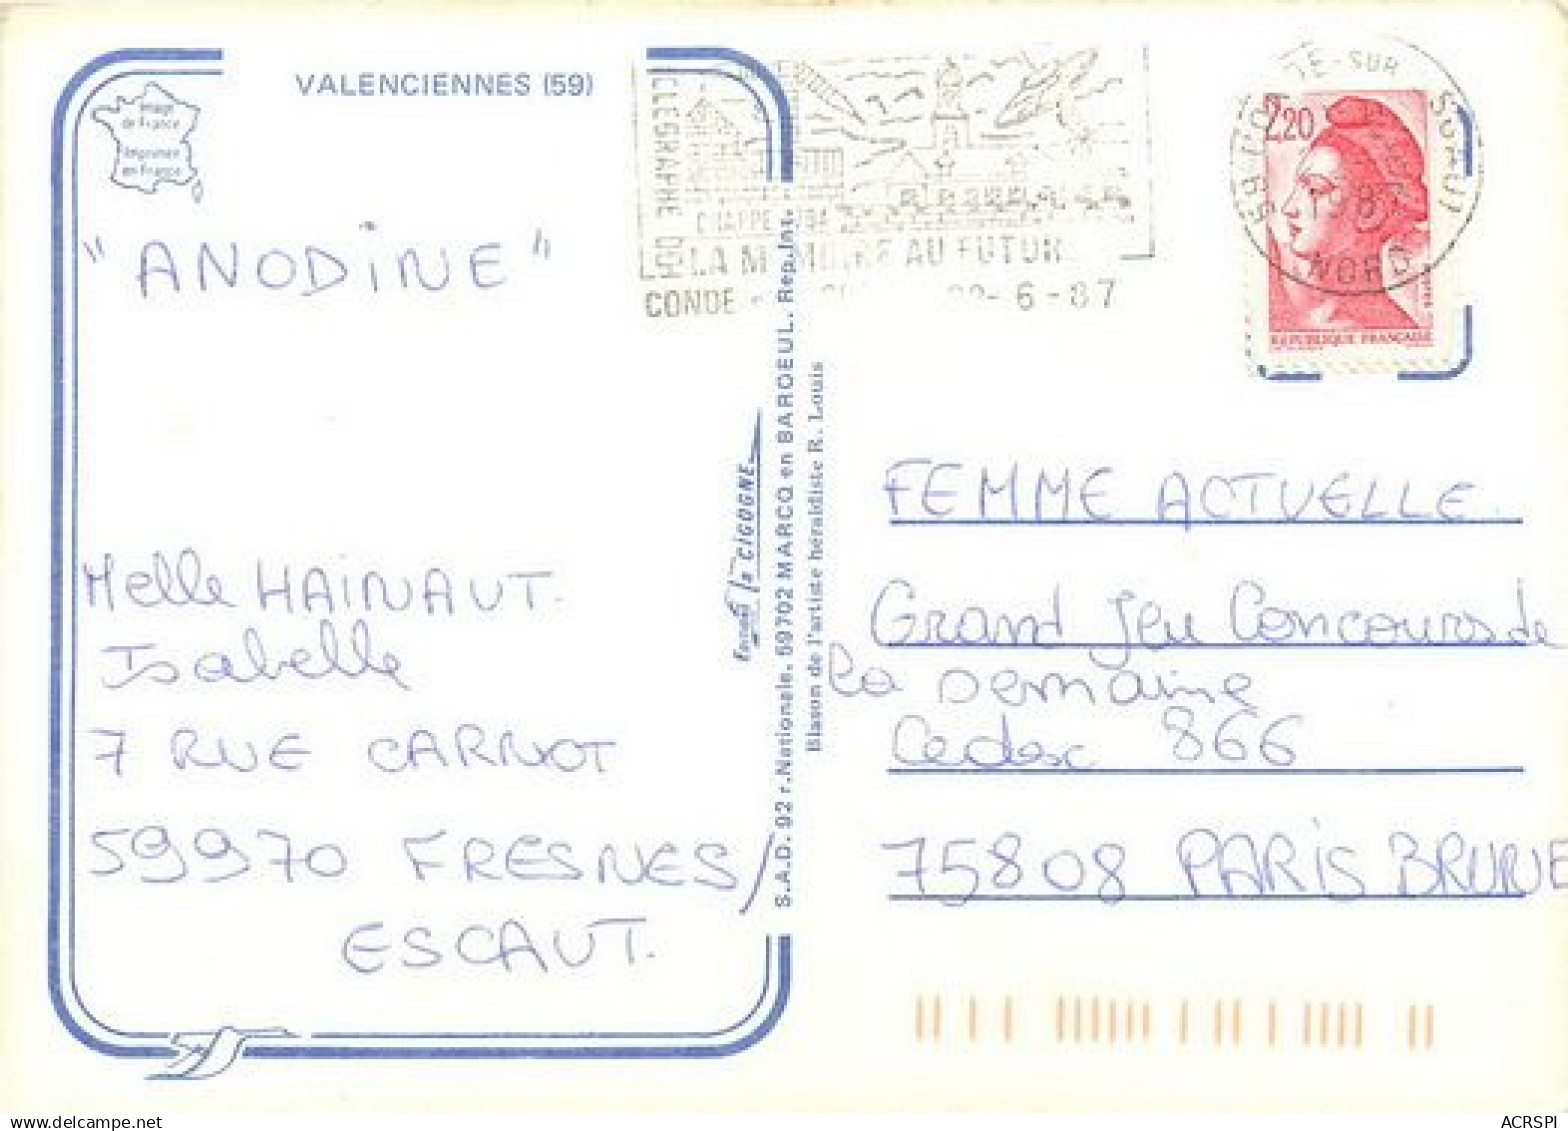 VALENCIENNES (59)
Image
de France
Imprimée
en France
" ANODINE "
Melle HAINAUT.
Isabelle
7 RUE CARNOT
59970 FRESNES/
ESCAUT.
CHAPPE
LA MEMOIRE AU FUTUR
CONDE - 6 - 87
Europe la CIGOGNE
S.A.D. 92 r. Nationale. 59702 MARCQ en BAROEUL. Rep. Int.
Blason de l'artiste héraldiste R. Louis
2,20
REPUBLIQUE FRANÇAISE
59
NORD
FEMME ACTUELLE
Grand Jeu Concours de
la semaine
Cedex 866
75808 PARIS BRUNE
ACRSPI